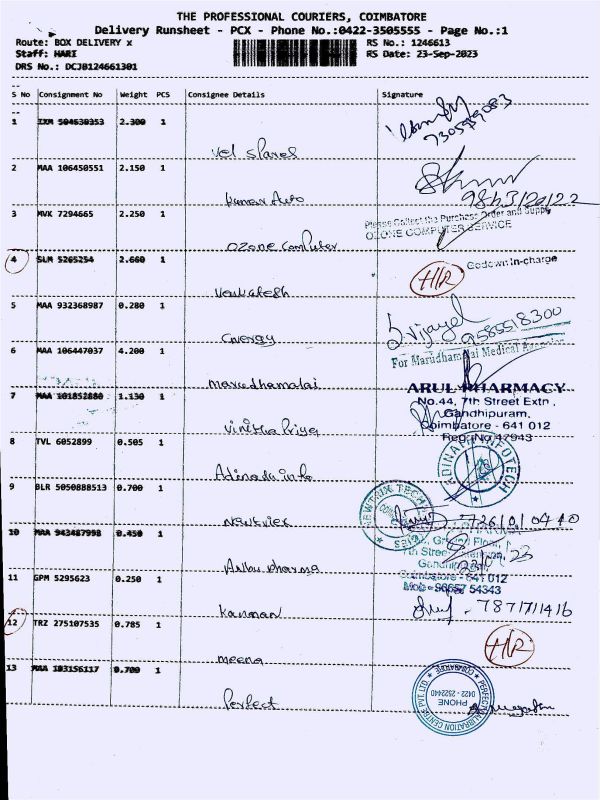 THE PROFESSIONAL COURIERS, COIMBATORE
Delivery Runsheet - PCX - Phone No.:0422-3505555 - Page No.:1
Route: BOX DELIVERY x
RS No.: 1246613
Staff: HARI
RS Date: 23-Sep-2023
DRS No.: DCJB124661301
S No Consignment No Weight PCS Consignee Details Signature
1 IXM 504630353 2.300 1
7305959083
Vel Spares
2 MAA 106450551 2.150 1
Kumar Auto
3 MVK 7294665 2.250 1
Please Collect the Purchase Order and Supply
OZONE COMPUTER SERVICE
Ozone Computer
4 SLM 5265254 2.660 1
Godown in-charge
H/R
Venkatesh
5 MAA 932368987 0.280 1
S Vijayel
9585518300
Energy
6 MAA 106447037 4.200 1
For Marudhamalai Medical
Marudhamalai
ARUL PHARMACY
No.44, 7th Street Extn.,
Gandhipuram,
Coimbatore - 641 012
Reg. No 47943
7 MAA 101852880 1.130 1
Vinitha Priya
8 TVL 6052899 0.505 1
ADINADA INFOTECH
Adinada info
9 BLR 5050888513 0.700 1
NEWTRIX TECH
Newtrix
10 MAA 943487998 0.450 1
Ground Floor,
7th Street Extension,
Gandhipuram
Coimbatore - 641 012
Mob - 98657 54343
Arul Pharma
11 GPM 5295623 0.250 1
7871711416
Kannan
12 TRZ 275107535 0.785 1
H/R
Meena
13 MAA 103156117 0.700 1
PERFECT CALIBRATION CENTRE PVT. LTD.
COIMBATORE
PHONE
0422 - 2522440
Perfect